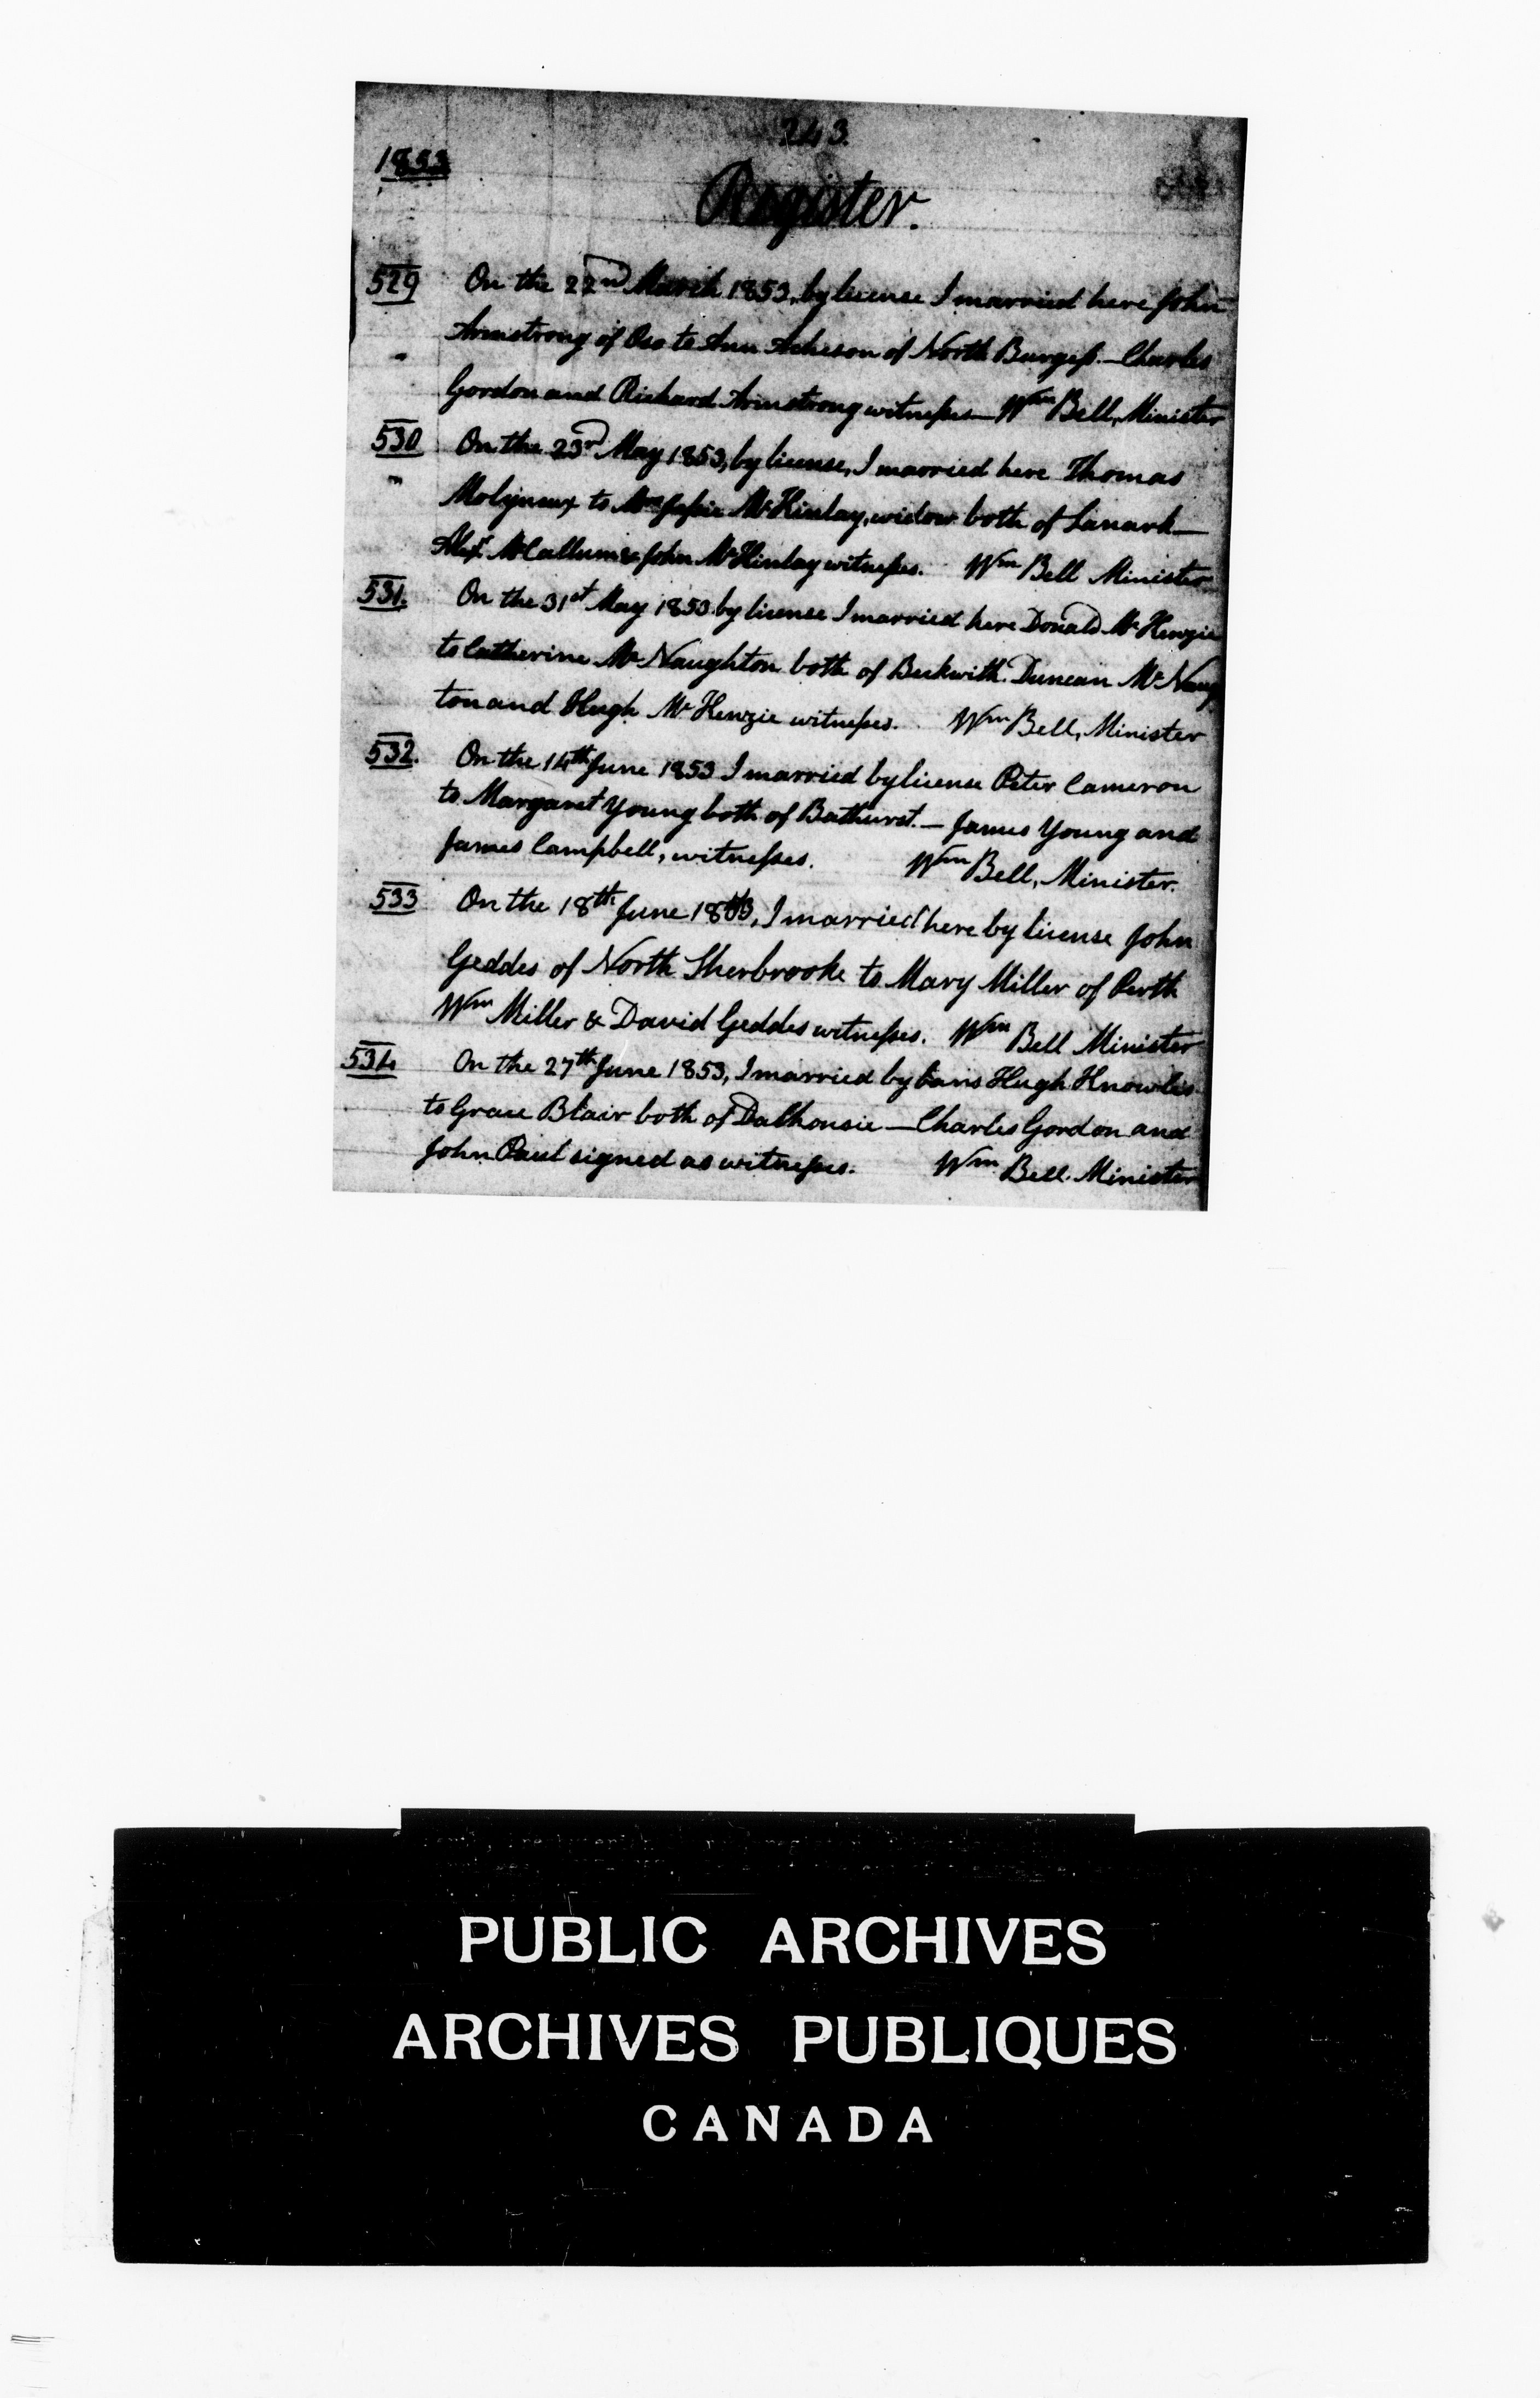 243.
1853
Register.
529 On the 22nd March 1853, by license I married here John
Armstrong of Oso to Ann Acheson of North Burgess. — Charles
Gordon and Richard Armstrong witnesses — Wm Bell, Minister
530 On the 23rd May 1853, by license, I married here Thomas
Molyneux to Mrs Jessie McKinlay, widow both of Lanark —
Alexr McCallum & John McKinlay witnesses. Wm Bell Minister
531. On the 31st May 1853 by license I married here Donald McKenzie
to Catherine McNaughton both of Beckwith. Duncan McNaug
ton and Hugh McKenzie witnesses. Wm Bell, Minister
532. On the 14th June 1853 I married by license Peter Cameron
to Margaret Young both of Bathurst. — James Young and
James Campbell, witnesses. Wm Bell, Minister.
533 On the 18th June 1853, I married here by license John
Geddes of North Sherbrooke to Mary Miller of Perth
Wm Miller & David Geddes witnesses. Wm Bell Minister
534 On the 27th June 1853, I married by bans Hugh Knowles
to Grace Blair both of Dalhousie — Charles Gordon and
John Paul signed as witnesses. Wm Bell. Minister
PUBLIC ARCHIVES
ARCHIVES PUBLIQUES
CANADA